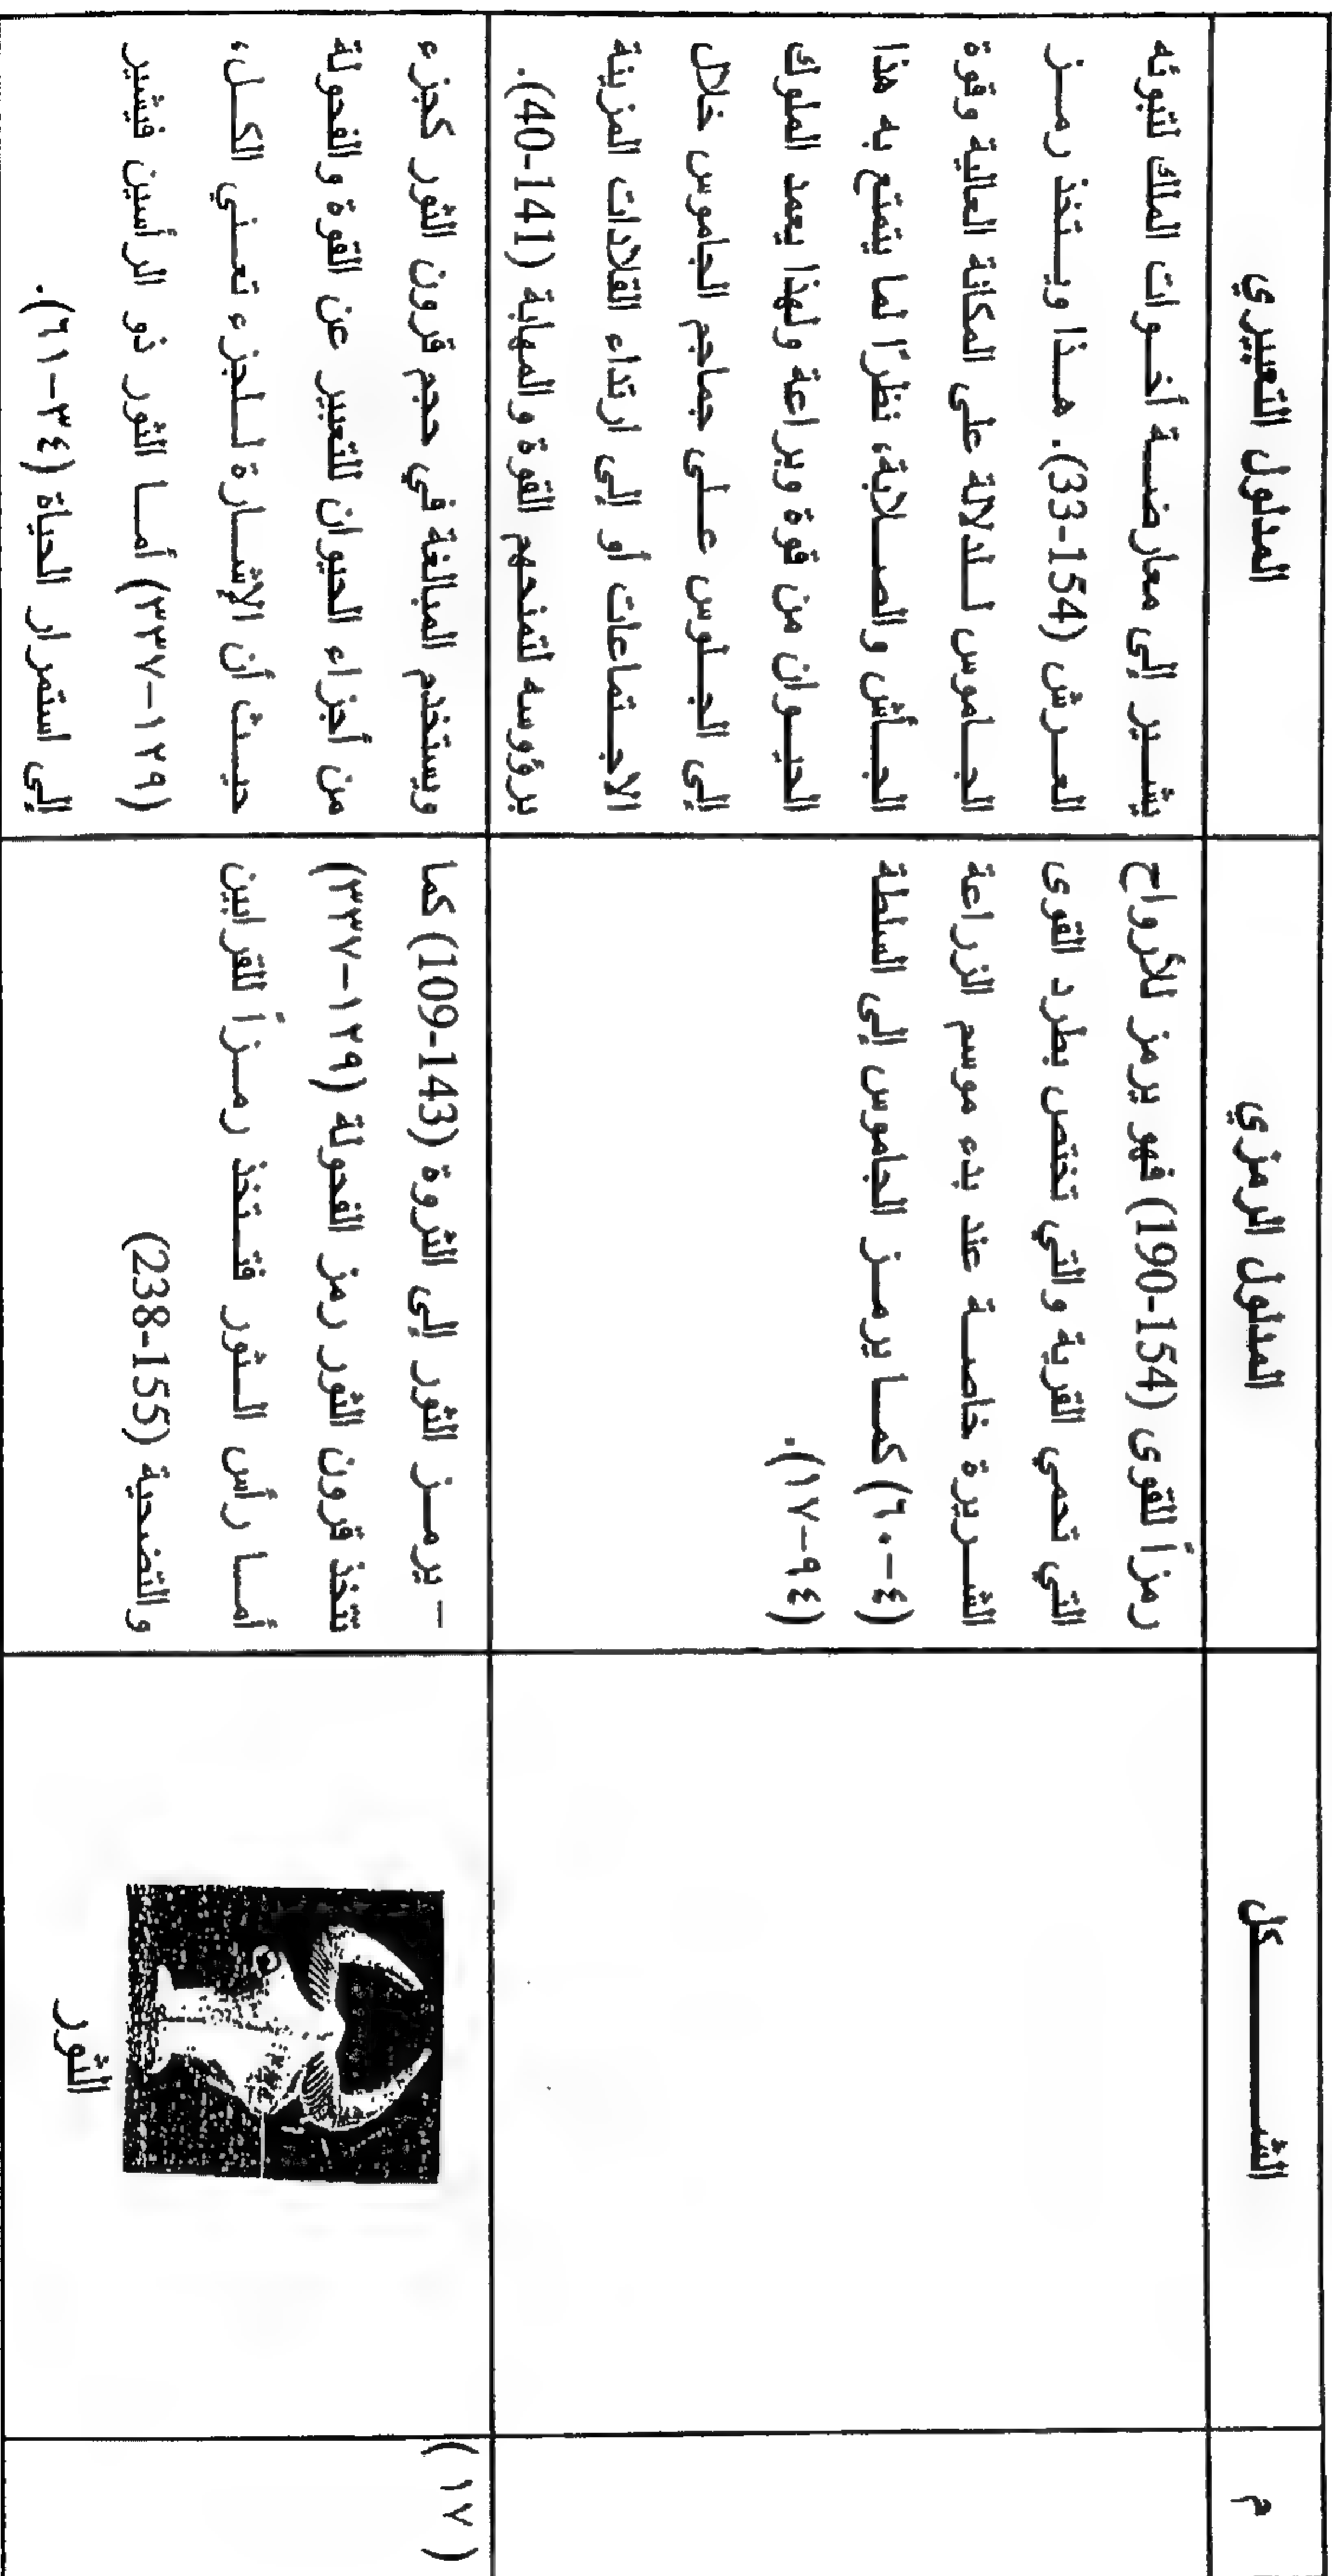 م
الشــــــــكل
المدلول الرمزي
المدلول التعبيري
رمزاً للقوى (154-190) فهو يرمز للأرواح
التي تحمي القرية والتي تختص بطرد القوى
الشريرة خاصة عند بدء موسم الزراعة
(٤-٦٠) كما يرمز الجاموس إلى السلطة
(٩٤-١٧).
يشير إلى معارضة أخوات الملك لتبوئه
العرش (154-33). هذا ويتخذ رمز
الجاموس للدلالة على المكانة العالية وقوة
الجأش والصلابة، نظرًا لما يتمتع به هذا
الحيوان من قوة وبراعة ولهذا يعمد الملوك
إلى الجلوس على جماجم الجاموس خلال
الاجتماعات أو إلى ارتداء القلادات المزينة
برؤوسه لتمنحهم القوة والمهابة (141-40).
(١٧)
الثور
- يرمز الثور إلى الثروة (143-109) كما
تتخذ قرون الثور رمز الفحولة (١٢٩-٣٣٧)
أما رأس الثور فتتخذ رمزاً للقرابين
والتضحية (155-238)
ويستخدم المبالغة في حجم قرون الثور كجزء
من أجزاء الحيوان للتعبير عن القوة والفحولة
حيث أن الإشارة للجزء تعني الكل،
(١٢٩-٣٣٧) أما الثور ذو الرأسين فيشير
إلى استمرار الحياة (٣٤-٦١).